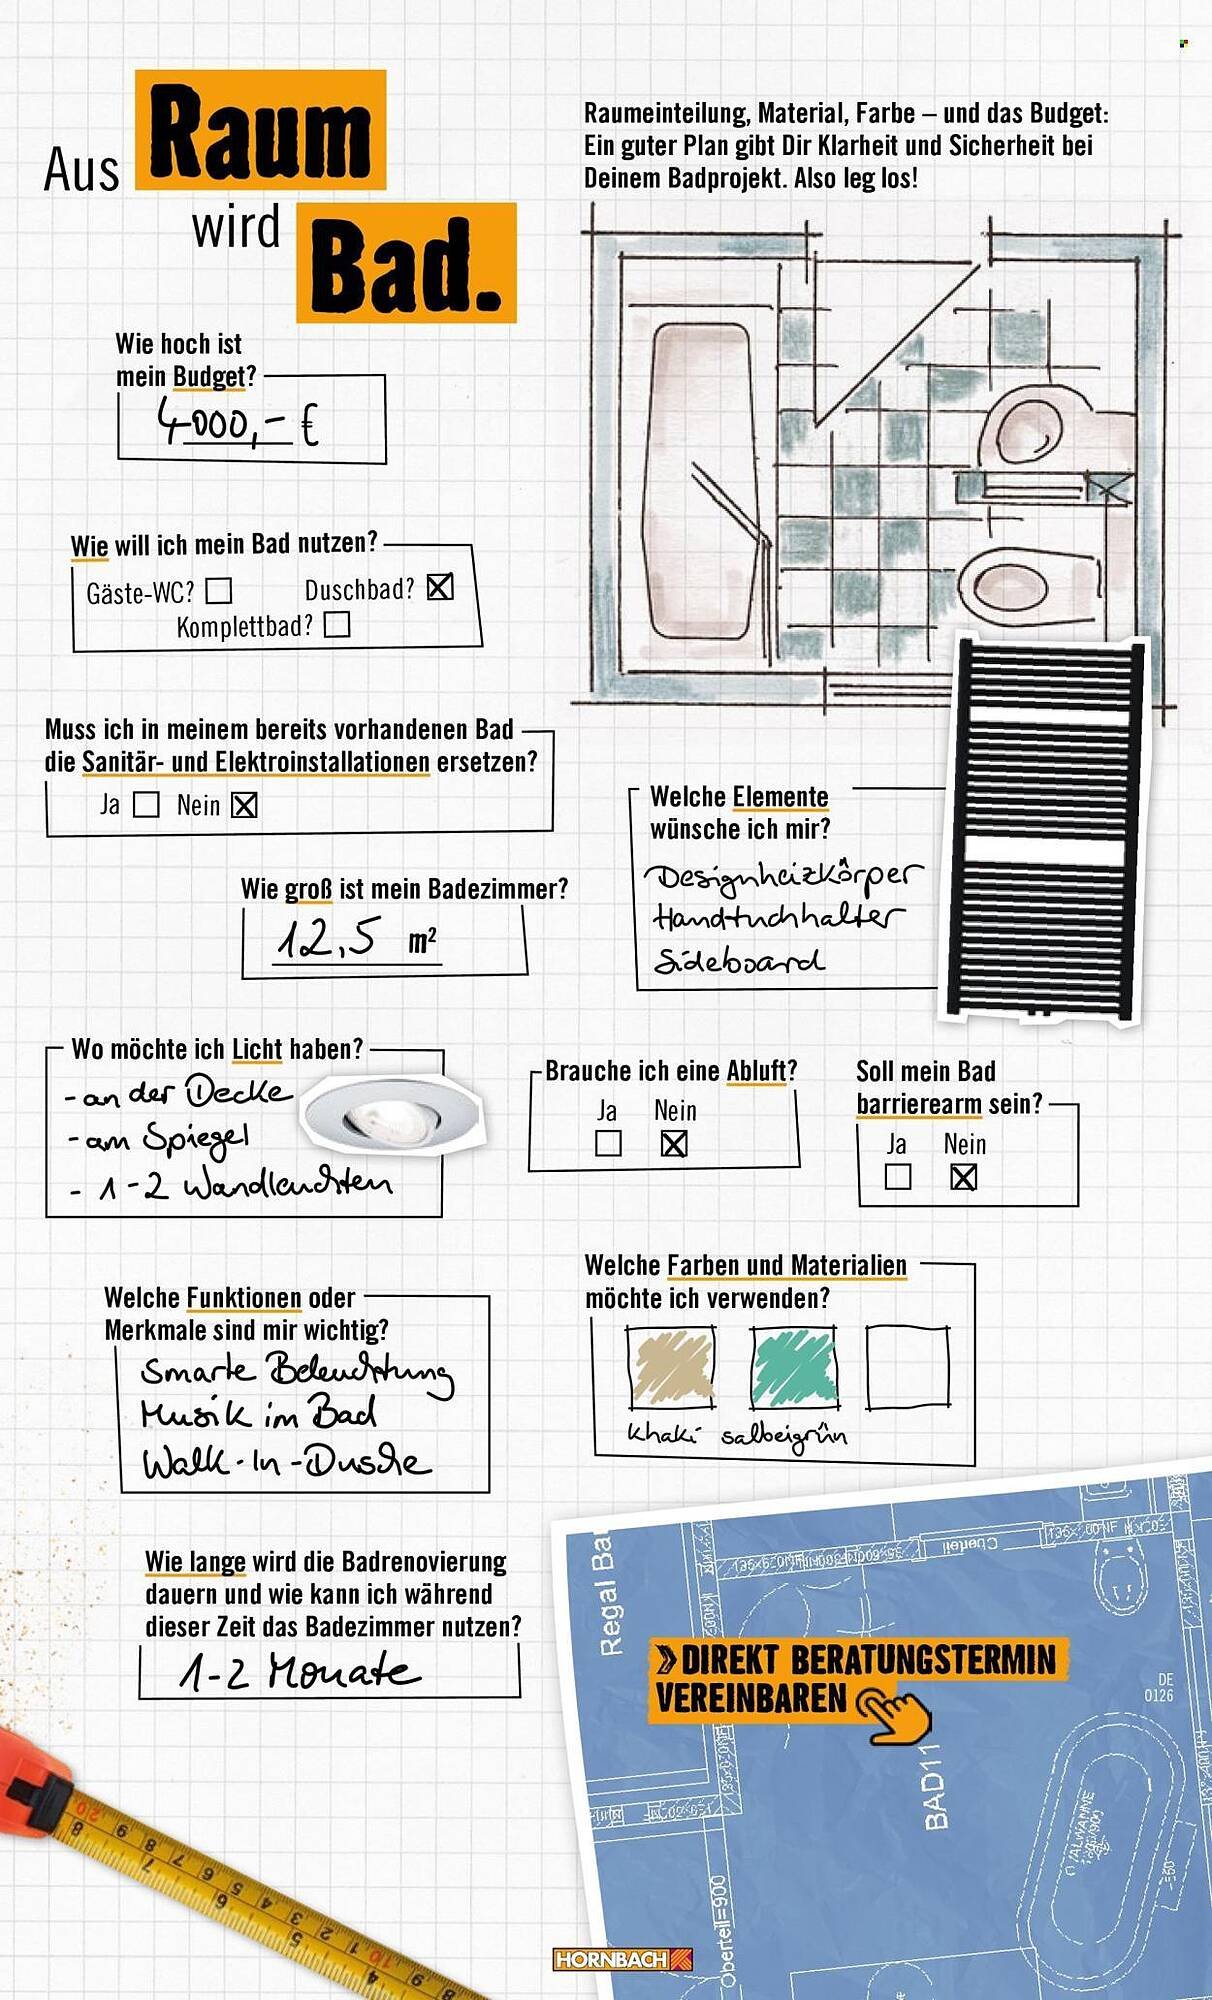 Aus Raum
wird Bad.
Raumeinteilung, Material, Farbe – und das Budget:
Ein guter Plan gibt Dir Klarheit und Sicherheit bei
Deinem Badprojekt. Also leg los!
Wie hoch ist
mein Budget?
4000,- €
Wie will ich mein Bad nutzen?
Gäste-WC? ☐ Duschbad? ☒
Komplettbad? ☐
Muss ich in meinem bereits vorhandenen Bad
die Sanitär- und Elektroinstallationen ersetzen?
Ja ☐ Nein ☒
Wie groß ist mein Badezimmer?
12,5 m²
Welche Elemente
wünsche ich mir?
Designheizkörper
Handtuchhalter
Sideboard
Wo möchte ich Licht haben?
- an der Decke
- am Spiegel
- 1-2 Wandleuchten
Brauche ich eine Abluft?
Ja Nein
☐ ☒
Soll mein Bad
barrierearm sein?
Ja Nein
☐ ☒
Welche Funktionen oder
Merkmale sind mir wichtig?
Smarte Beleuchtung
Musik im Bad
Walk-In-Dusche
Welche Farben und Materialien
möchte ich verwenden?
khaki salbeigrün
Wie lange wird die Badrenovierung
dauern und wie kann ich während
dieser Zeit das Badezimmer nutzen?
1-2 Monate
Regal Ba
» DIREKT BERATUNGSTERMIN
VEREINBAREN
DE
0126
BAD11
Oberteil=900
HORNBACH